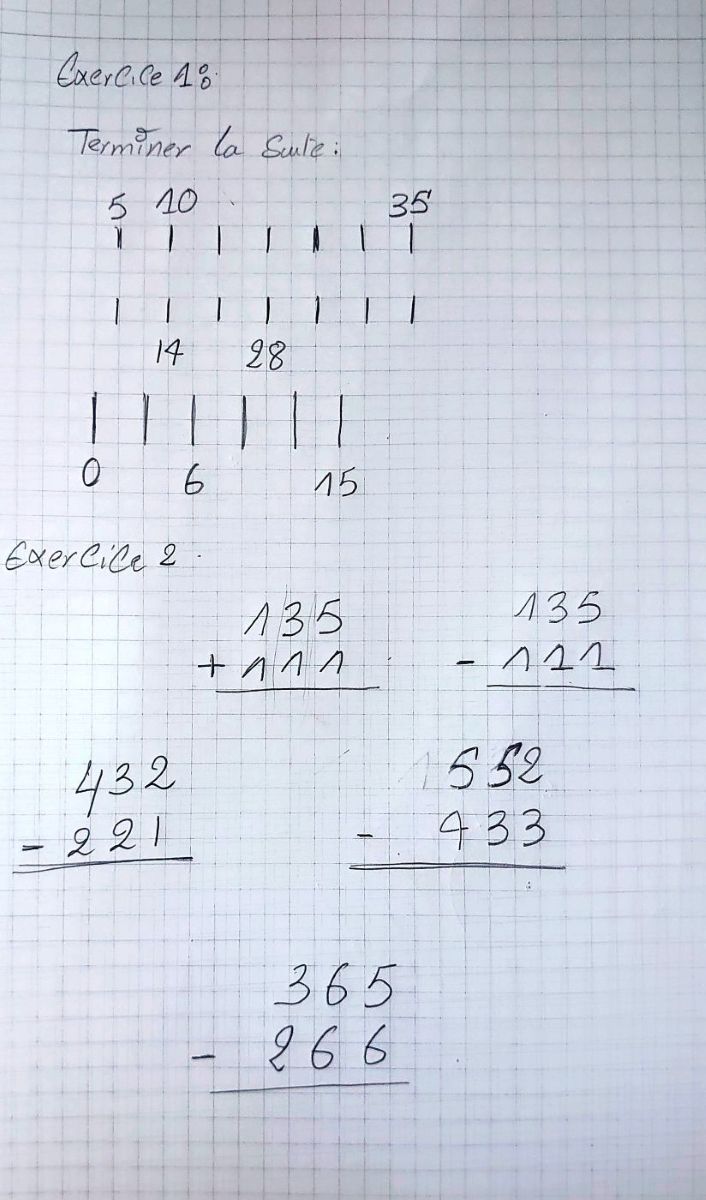 Exercice 1:
Terminer la Suite:
5 10 35
14 28
0 6 15
Exercice 2.
135 135
+ 111 - 111
432 552
- 221 - 433
365
- 266